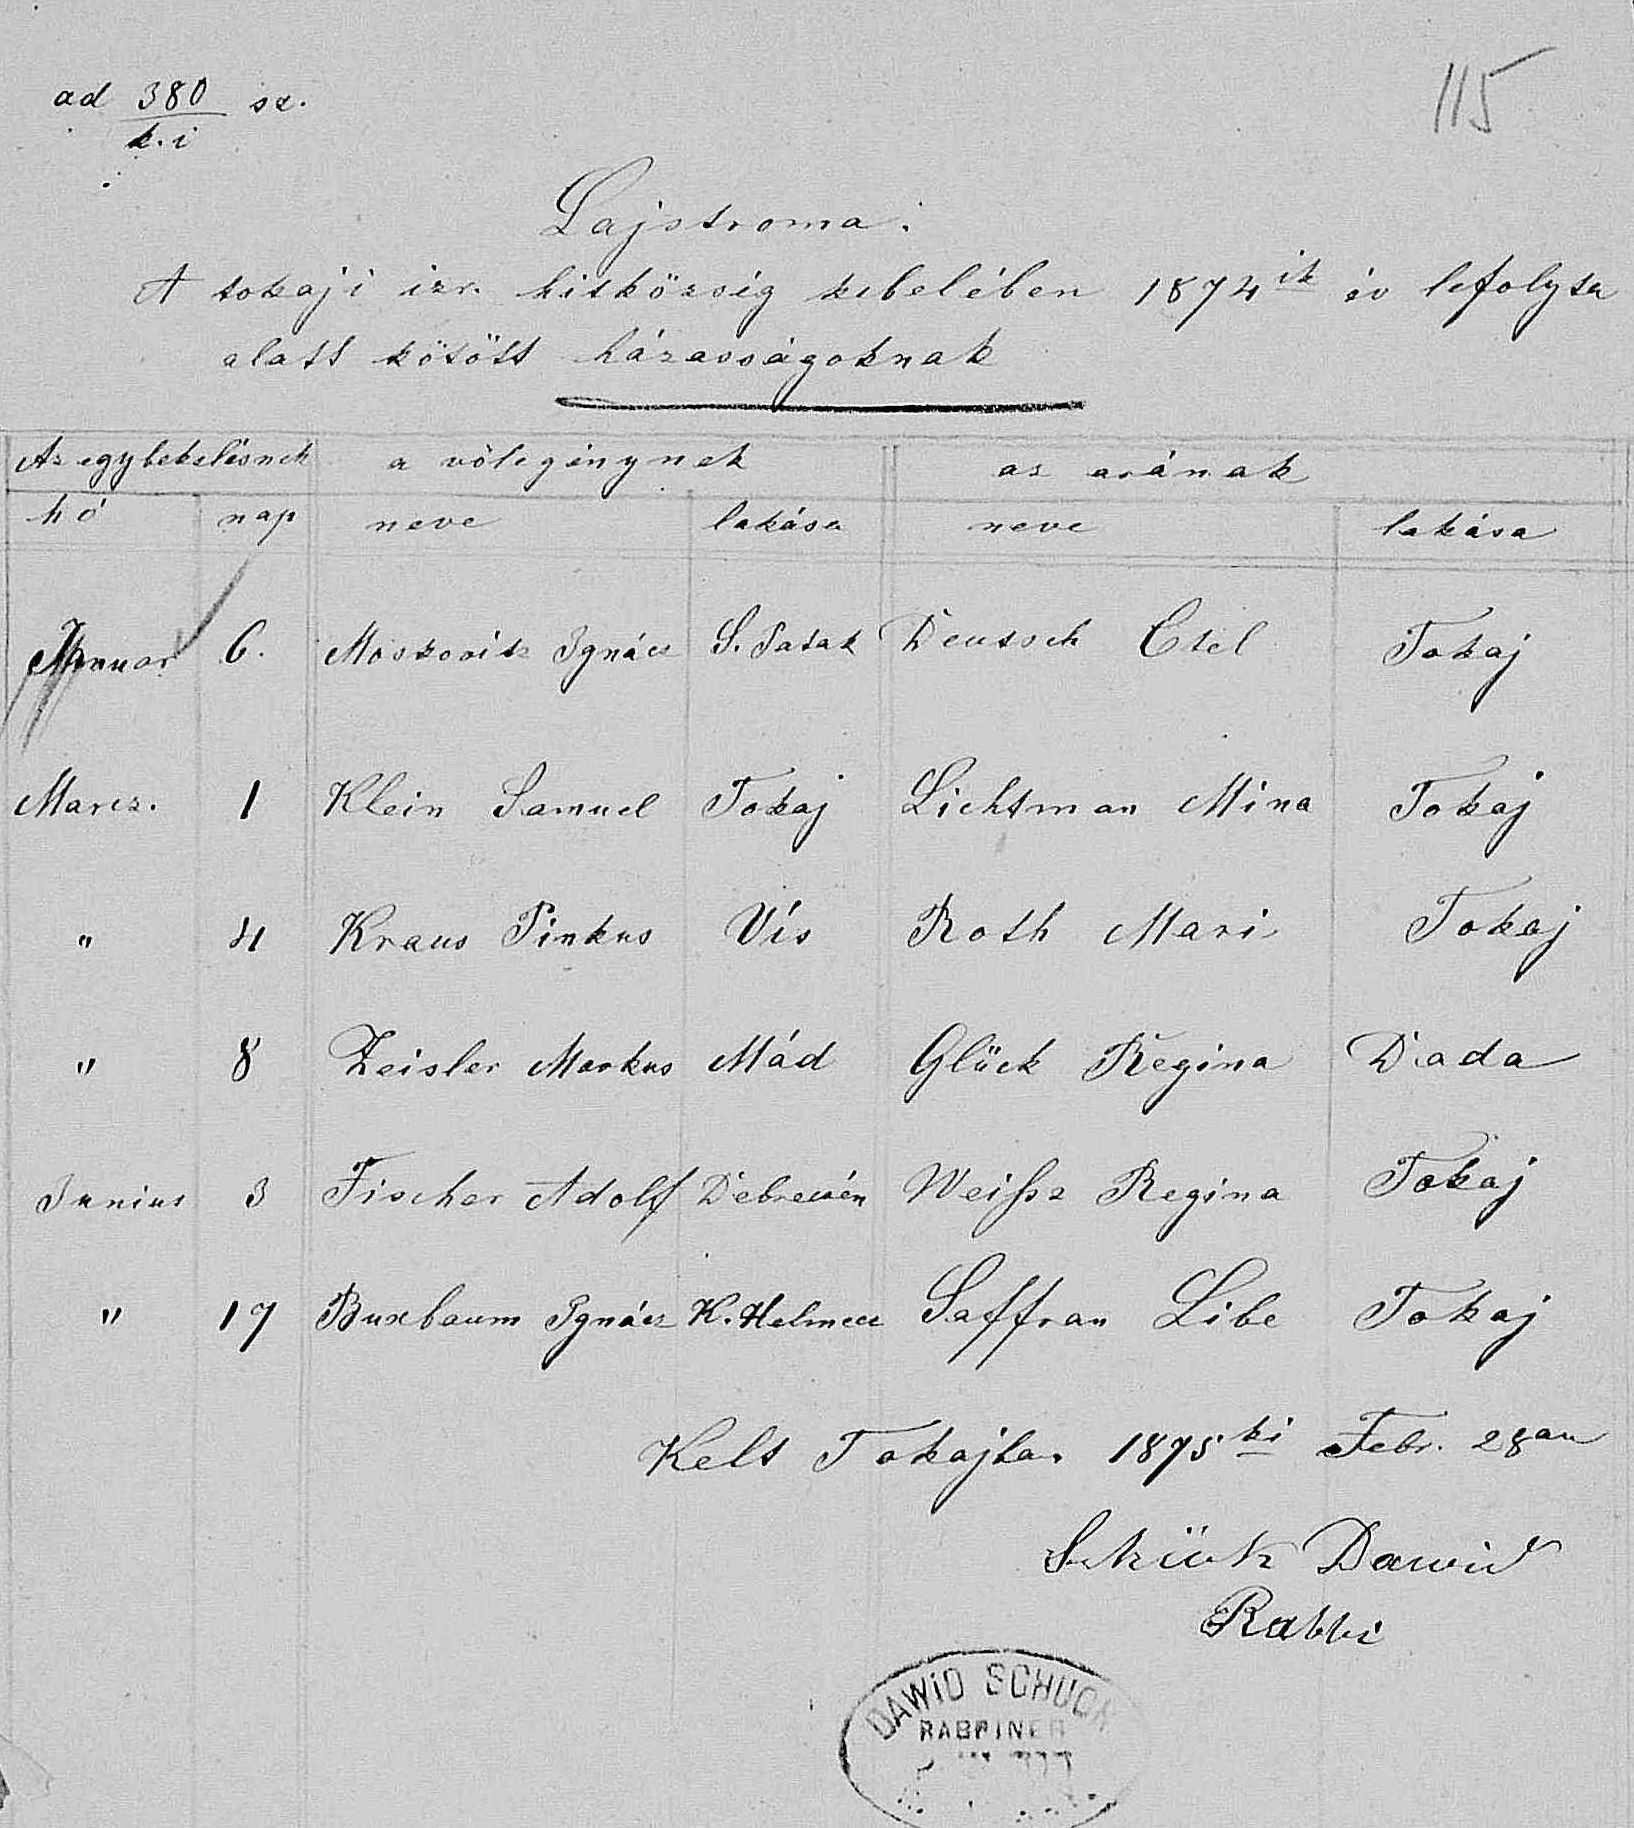 ad 380 sz.
k. i
115
Lajstroma.
A tokaji izr. hitközség kebelében 1874ik év lefolyta
alatt kötött házasságoknak
Az egybekelésnek a vőlegénynek az arának
hó nap neve lakása neve lakása
Januar 6. Moskovits Ignácz S. Patak Deutsch Etel Tokaj
Marcz. 1 Klein Samuel Tokaj Lichtman Mina Tokaj
" 4 Kraus Pinkus Vis Roth Mari Tokaj
" 8 Zeisler Markus Mád Glück Regina Dada
Junius 3 Fischer Adolf Debreczén Weißz Regina Tokaj
" 17 Buxbaum Ignácz K. Helmecz Saffran Libe Tokaj
Kelt Tokajba. 1875ki Febr. 28an
Schück Dawid
Rabbi
DAWID SCHÜCK
RABBINER